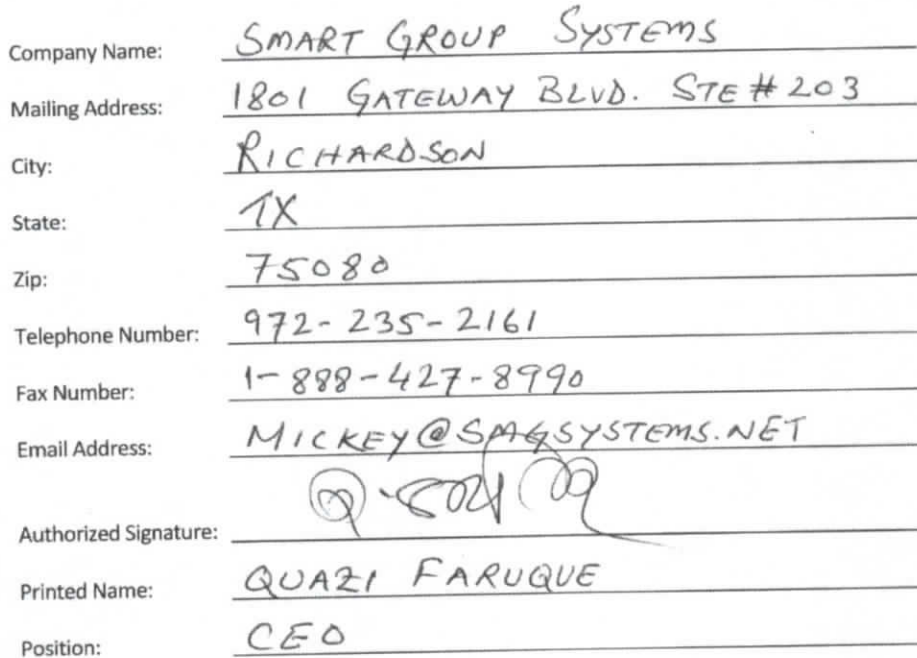 Company Name: SMART GROUP SYSTEMS
Mailing Address: 1801 GATEWAY BLVD. STE # 203
City: RICHARDSON
State: TX
Zip: 75080
Telephone Number: 972-235-2161
Fax Number: 1-888-427-8990
Email Address: MICKEY@SMGSYSTEMS.NET
Authorized Signature:
Printed Name: QUAZI FARUQUE
Position: CEO